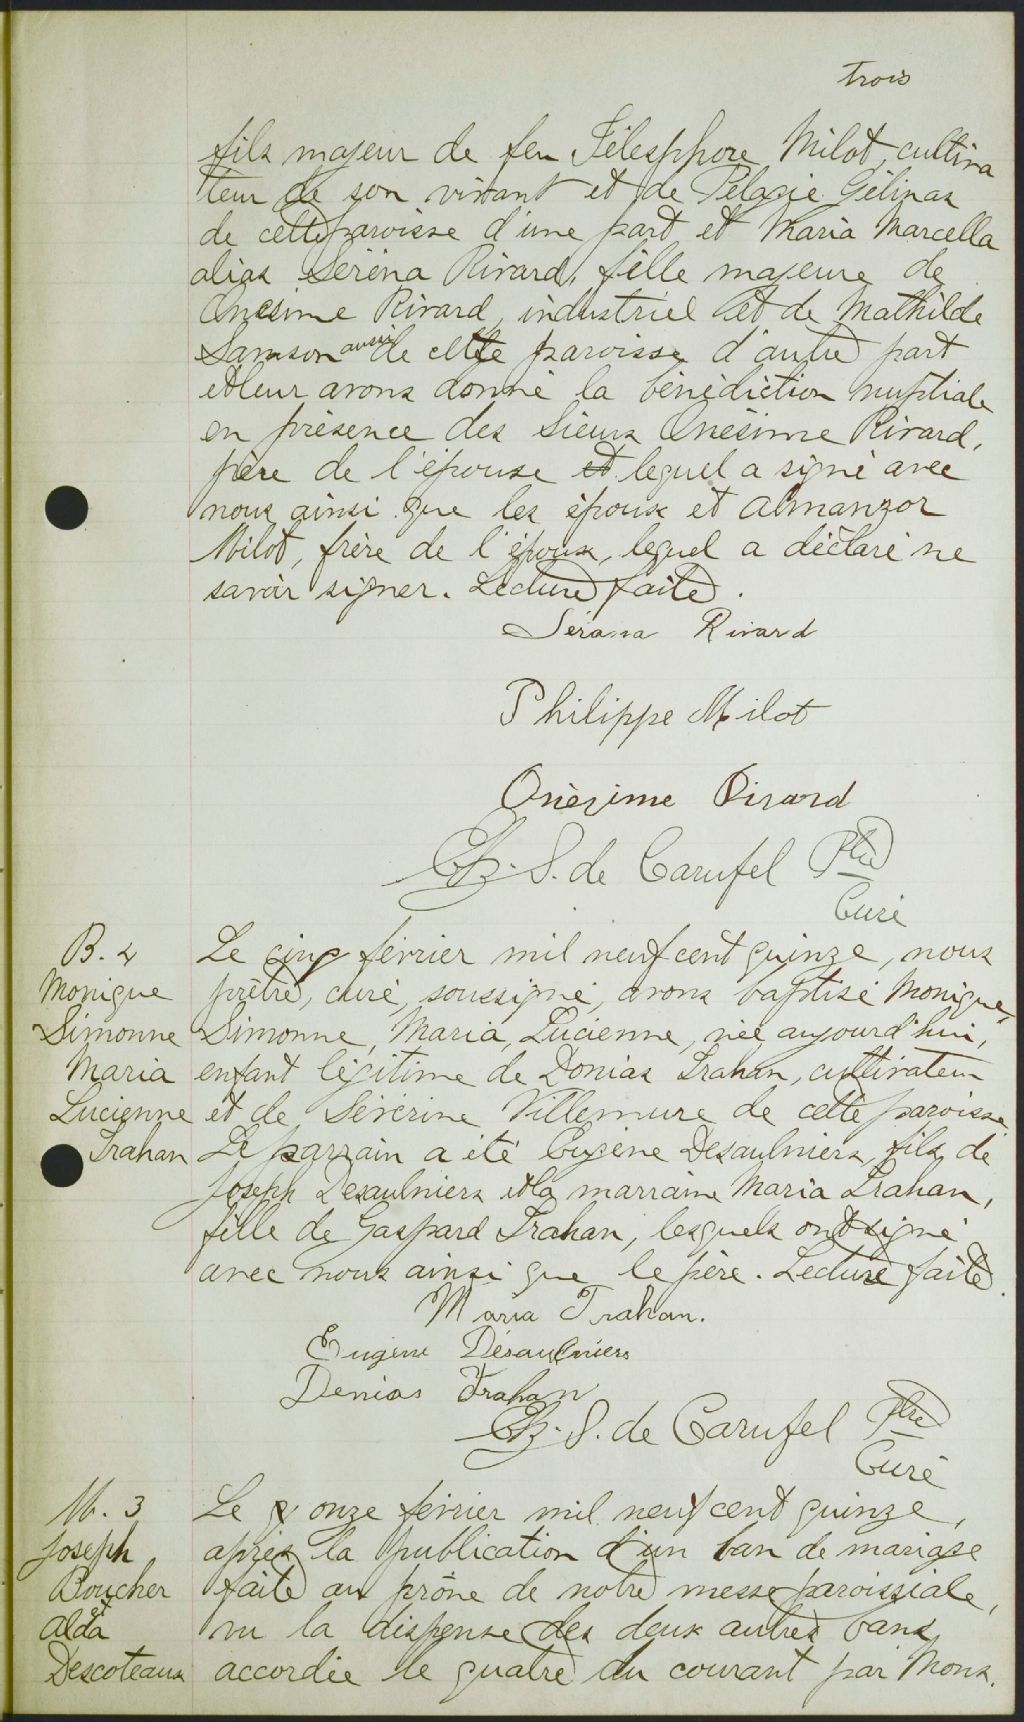 trois
fils majeur de feu Télesphore Milot, cultiva
teur de son vivant et de Pélagie Gélinas
de cette paroisse d'une part et Maria Marcella
alias Serena Rivard, fille majeure de
Onesime Rivard, industriel et de Mathilde
Samson aussi de cette paroisse d'autre part
et leur avons donné la bénédiction nuptiale
en présence des Sieurs Onésime Rivard,
père de l'épouse et lequel a signé avec
nous ainsi que les époux et Almanzor
Milot, frère de l'époux, lequel a déclaré ne
savoir signer. Lecture faite.
Sérana Rivard
Philippe Milot
Onèzime Rivard
Chs. S. de Carufel Ptre
Curé
B. 2 Le cinq février mil neuf cent quinze, nous
Monique prêtre, curé, soussigné, avons baptisé Monique,
Simonne Simonne, Maria, Lucienne, née aujourd'hui,
Maria enfant légitime de Donias Trahan, cultivateur
Lucienne et de Sévérine Villemure de cette paroisse.
Trahan Le parrain a été Eugène Desaulniers, fils de
Joseph Desaulniers et la marraine Maria Trahan,
fille de Gaspard Trahan, lesquels ont signé
avec nous ainsi que le père. Lecture faite.
Maria Trahan.
Eugène Désaulniers
Denias Trahan
Chs. S. de Carufel Ptre
Curé
M. 3 Le onze février mil neuf cent quinze,
Joseph après la publication d'un ban de mariage
Boucher faite au prône de notre messe paroissiale,
et
Alda vu la dispense des deux autres bans
Descoteaux accordée le quatre du courant par Mons.